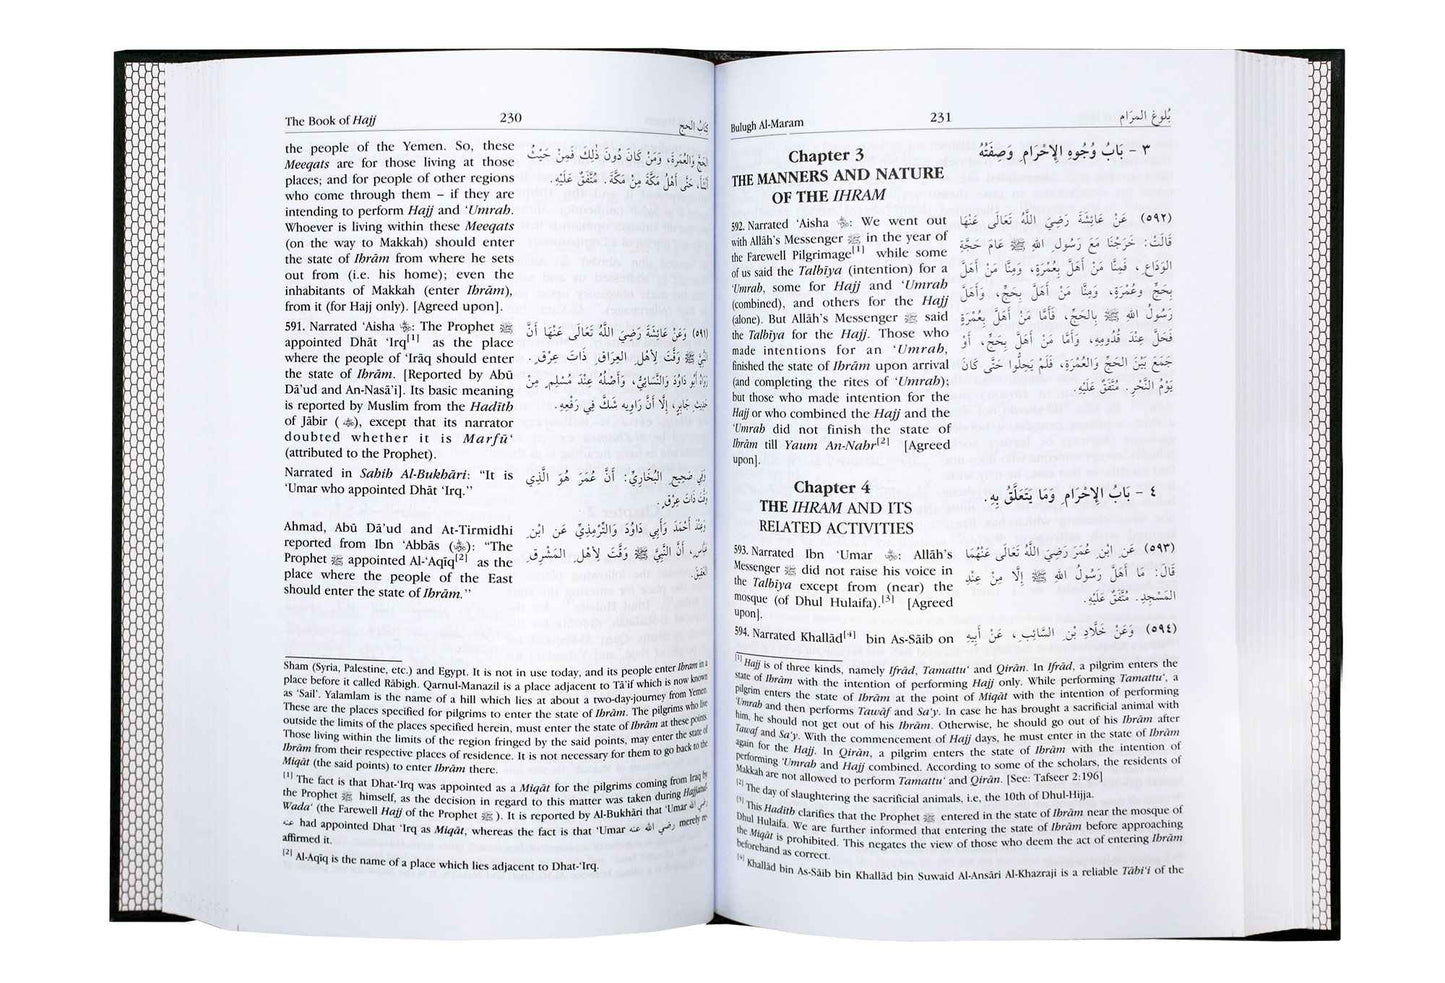 The Book of Hajj
230
كتابُ الحج
the people of the Yemen. So, these
Meeqats are for those living at those
places; and for people of other regions
who come through them – if they are
intending to perform Hajj and ‘Umrah.
Whoever is living within these Meeqats
(on the way to Makkah) should enter
the state of Ihrām from where he sets
out from (i.e. his home); even the
inhabitants of Makkah (enter Ihrām),
from it (for Hajj only). [Agreed upon].
الحَجَّ وَالْعُمْرَةَ، وَمَنْ كَانَ دُونَ ذَلِكَ فَمِنْ حَيْثُ
أَنْشَأَ، حَتَّى أَهْلُ مَكَّةَ مِنْ مَكَّةَ. مُتَّفَقٌ عَلَيْهِ.
591. Narrated ‘Aisha : The Prophet ﷺ
appointed Dhāt ‘Irq[1] as the place
where the people of ‘Irāq should enter
the state of Ihrām. [Reported by Abū
Dā’ud and An-Nasā’i]. Its basic meaning
is reported by Muslim from the Hadīth
of Jābir ( ), except that its narrator
doubted whether it is Marfū‘
(attributed to the Prophet).
(٥٩١) وَعَنْ عَائِشَةَ رَضِيَ اللَّهُ تَعَالَى عَنْهَا أَنَّ
النَّبِيَّ ﷺ وَقَّتَ لِأَهْلِ العِرَاقِ ذَاتَ عِرْقٍ.
رَوَاهُ أَبُو دَاوُدَ وَالنَّسَائِيُّ، وَأَصْلُهُ عِنْدَ مُسْلِمٍ مِنْ
حَدِيثِ جَابِرٍ، إِلَّا أَنَّ رَاوِيهِ شَكَّ فِي رَفْعِهِ.
Narrated in Sahih Al-Bukhāri: “It is
‘Umar who appointed Dhāt ‘Irq.”
وَفِي صَحِيحِ البُخَارِيِّ: أَنَّ عُمَرَ هُوَ الَّذِي
وَقَّتَ ذَاتَ عِرْقٍ.
Ahmad, Abū Dā’ud and At-Tirmidhi
reported from Ibn ‘Abbās ( ): “The
Prophet ﷺ appointed Al-‘Aqīq[2] as the
place where the people of the East
should enter the state of Ihrām.”
وَعِنْدَ أَحْمَدَ وَأَبِي دَاوُدَ وَالتِّرْمِذِيِّ عَنِ ابْنِ
عَبَّاسٍ، أَنَّ النَّبِيَّ ﷺ وَقَّتَ لِأَهْلِ المَشْرِقِ
العَقِيقَ.
Sham (Syria, Palestine, etc.) and Egypt. It is not in use today, and its people enter Ihram in a
place before it called Rābigh. Qarnul-Manazil is a place adjacent to Tā’if which is now known
as ‘Sail’. Yalamlam is the name of a hill which lies at about a two-day-journey from Yemen.
These are the places specified for pilgrims to enter the state of Ihrām. The pilgrims who live
outside the limits of the places specified herein, must enter the state of Ihrām at these points.
Those living within the limits of the region fringed by the said points, may enter the state of
Ihrām from their respective places of residence. It is not necessary for them to go back to the
Miqāt (the said points) to enter Ihrām there.
[1] The fact is that Dhat-‘Irq was appointed as a Miqāt for the pilgrims coming from Iraq by
the Prophet ﷺ himself, as the decision in regard to this matter was taken during Hajjatul-
Wada‘ (the Farewell Hajj of the Prophet ﷺ). It is reported by Al-Bukhāri that ‘Umar رضي الله
عنه had appointed Dhat ‘Irq as Miqāt, whereas the fact is that ‘Umar رضي الله عنه merely re-
affirmed it.
[2] Al-Aqīq is the name of a place which lies adjacent to Dhat-‘Irq.
Bulugh Al-Maram
231
بُلوغ المرَام
Chapter 3
THE MANNERS AND NATURE
OF THE IHRAM
٣ - بَابُ وُجُوهِ الإِحْرَامِ وَصِفَتُهُ
592. Narrated ‘Aisha : We went out
with Allāh’s Messenger ﷺ in the year of
the Farewell Pilgrimage[1] while some
of us said the Talbīya (intention) for a
‘Umrah, some for Hajj and ‘Umrah
(combined), and others for the Hajj
(alone). But Allāh’s Messenger ﷺ said
the Talbīya for the Hajj. Those who
made intentions for an ‘Umrah,
finished the state of Ihrām upon arrival
(and completing the rites of ‘Umrah);
but those who made intention for the
Hajj or who combined the Hajj and the
‘Umrah did not finish the state of
Ihrām till Yaum An-Nahr[2] [Agreed
upon].
(٥٩٢) عَنْ عَائِشَةَ رَضِيَ اللَّهُ تَعَالَى عَنْهَا
قَالَتْ: خَرَجْنَا مَعَ رَسُولِ اللهِ ﷺ عَامَ حَجَّةِ
الوَدَاعِ، فَمِنَّا مَنْ أَهَلَّ بِعُمْرَةٍ، وَمِنَّا مَنْ أَهَلَّ
بِحَجٍّ وَعُمْرَةٍ، وَمِنَّا مَنْ أَهَلَّ بِحَجٍّ، وَأَهَلَّ
رَسُولُ اللهِ ﷺ بِالحَجِّ، فَأَمَّا مَنْ أَهَلَّ بِعُمْرَةٍ
فَحَلَّ عِنْدَ قُدُومِهِ، وَأَمَّا مَنْ أَهَلَّ بِحَجٍّ، أَوْ
جَمَعَ بَيْنَ الحَجِّ وَالعُمْرَةِ، فَلَمْ يَحِلُّوا حَتَّى كَانَ
يَوْمُ النَّحْرِ. مُتَّفَقٌ عَلَيْهِ.
Chapter 4
THE IHRAM AND ITS
RELATED ACTIVITIES
٤ - بَابُ الإِحْرَامِ وَمَا يَتَعَلَّقُ بِهِ.
593. Narrated Ibn ‘Umar : Allāh’s
Messenger ﷺ did not raise his voice in
the Talbīya except from (near) the
mosque (of Dhul Hulaifa).[3] [Agreed
upon].
(٥٩٣) عَنِ ابْنِ عُمَرَ رَضِيَ اللَّهُ تَعَالَى عَنْهُمَا
قَالَ: مَا أَهَلَّ رَسُولُ اللهِ ﷺ إِلَّا مِنْ عِنْدِ
المَسْجِدِ. مُتَّفَقٌ عَلَيْهِ.
594. Narrated Khallād[4] bin As-Sāib on
(٥٩٤) وَعَنْ خَلَّادِ بْنِ السَّائِبِ، عَنْ أَبِيهِ
[1] Hajj is of three kinds, namely Ifrād, Tamattu‘ and Qirān. In Ifrād, a pilgrim enters the
state of Ihrām with the intention of performing Hajj only. While performing Tamattu‘, a
pilgrim enters the state of Ihrām at the point of Miqāt with the intention of performing
‘Umrah and then performs Tawāf and Sa‘y. In case he has brought a sacrificial animal with
him, he should not get out of his Ihrām. Otherwise, he should go out of his Ihrām after
Tawaf and Sa‘y. With the commencement of Hajj days, he must enter in the state of Ihrām
again for the Hajj. In Qirān, a pilgrim enters the state of Ihrām with the intention of
performing ‘Umrah and Hajj combined. According to some of the scholars, the residents of
Makkah are not allowed to perform Tamattu‘ and Qirān. [See: Tafseer 2:196]
[2] The day of slaughtering the sacrificial animals, i.e, the 10th of Dhul-Hijja.
[3] This Hadīth clarifies that the Prophet ﷺ entered in the state of Ihrām near the mosque of
Dhul Hulaifa. We are further informed that entering the state of Ihrām before approaching
the Miqāt is prohibited. This negates the view of those who deem the act of entering Ihrām
beforehand as correct.
[4] Khallād bin As-Sāib bin Khallād bin Suwaid Al-Ansāri Al-Khazraji is a reliable Tābi‘i of the